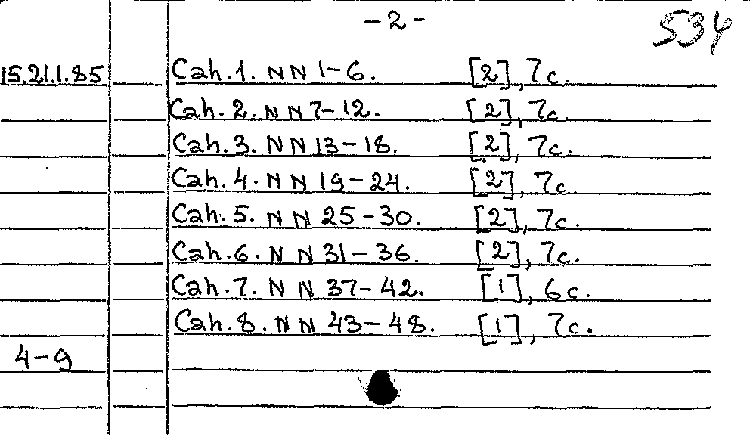 -2-
534
15.21.1.85 Cah.1. NN 1-6. [2], 7c.
Cah. 2. NN 7-12. [2], 7c.
Cah. 3. NN 13-18. [2], 7c.
Cah. 4. NN 19-24. [2], 7c.
Cah. 5. NN 25-30. [2], 7c.
Cah. 6. NN 31-36. [2], 7c.
Cah. 7. NN 37-42. [1], 6c.
Cah. 8. NN 43-48. [1], 7c.
4-9